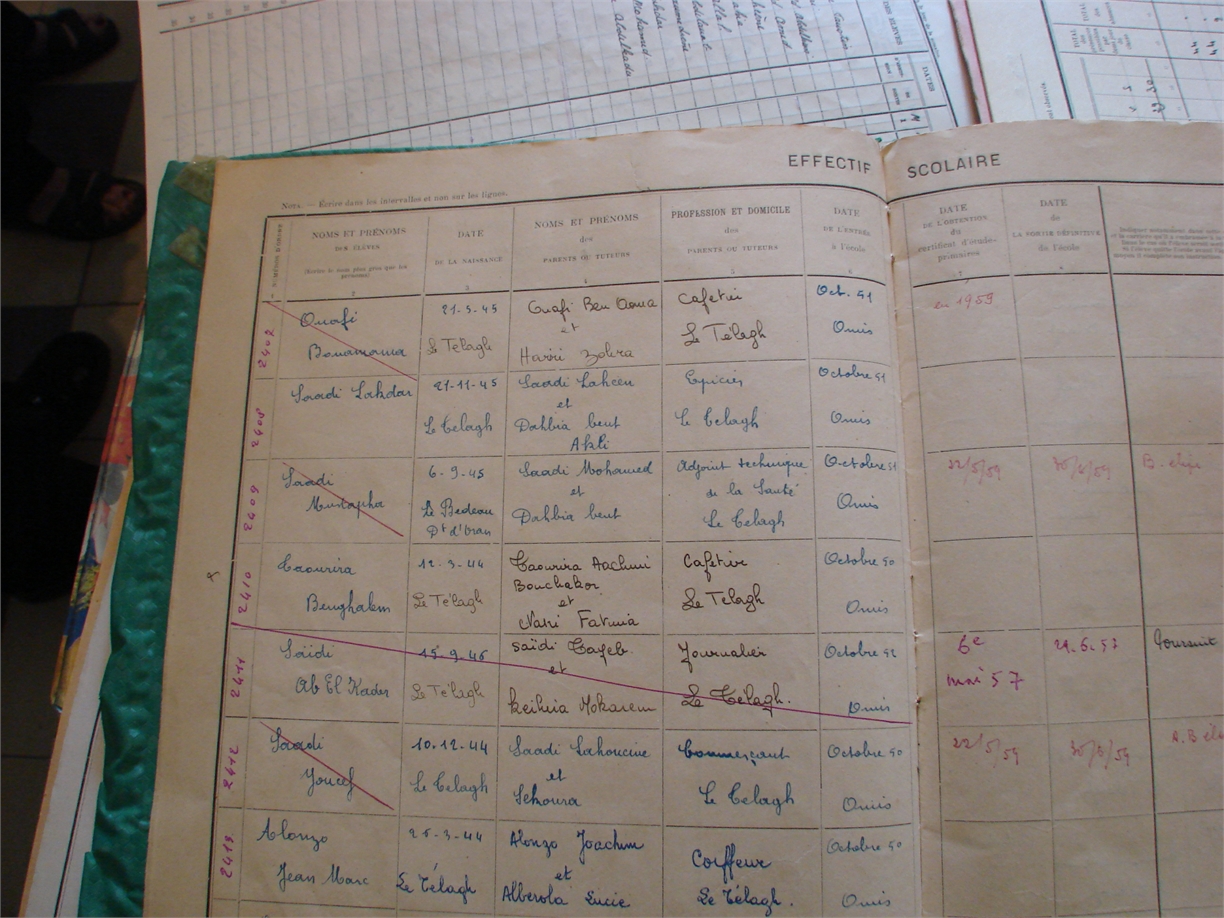 EFFECTIF SCOLAIRE
NOTA. — Écrire dans les intervalles et non sur les lignes.
NUMÉROS D'ORDRE
NOMS ET PRÉNOMS
DES ÉLÈVES
(Écrire le nom plus gros que les prénoms)
2
DATE
DE LA NAISSANCE
3
NOMS ET PRÉNOMS
des
PARENTS OU TUTEURS
4
PROFESSION ET DOMICILE
des
PARENTS OU TUTEURS
5
DATE
DE L'ENTRÉE
à l'école
6
DATE
DE L'OBTENTION
du
certificat d'études
primaires
7
DATE
de
LA SORTIE DÉFINITIVE
de l'école
8
2407
Ouafi
Bouamama
21-5-45
Le Télagh
Ouafi Ben Aoma
et
Hariri Zohra
Cafetier
Le Télagh
Oct. 51
Omis
en 1959
2408
Saadi Lakdar
21-11-45
Le Telagh
Saadi Lahcen
et
Dahbia bent
Akli
Epicier
Le Telagh
Octobre 51
Omis
2409
Saadi
Mustapha
6-9-45
Le Bedeau
Dt d'Oran
Saadi Mohamed
et
Dahbia bent
Adjoint technique
de la Santé
Le Telagh
Octobre 51
Omis
22/5/59
30/6/59
2410
Taourira
Benghalem
12-3-44
Le Télagh
Taourira Hachmi
Bouchakor
et
Nairi Fatma
Cafetier
Le Télagh
Octobre 50
Omis
2411
Saïdi
Ab El Kader
15-9-46
Le Télagh
Saïdi Tayeb
et
Keihila Mokarem
Journalier
Le Télagh.
Octobre 52
Omis
6e
mai 57
29.6.57
Poursuit
2412
Saadi
Youcef
10-12-44
Le Telagh
Saadi Lahoucine
et
Sekoura
Commerçant
Le Telagh
Octobre 50
Omis
22/5/59
30/6/59
2413
Alonzo
Jean Marc
25-3-44
Le Télagh
Alonzo Joachim
et
Alberola Lucie
Coiffeur
Le Télagh.
Octobre 50
Omis